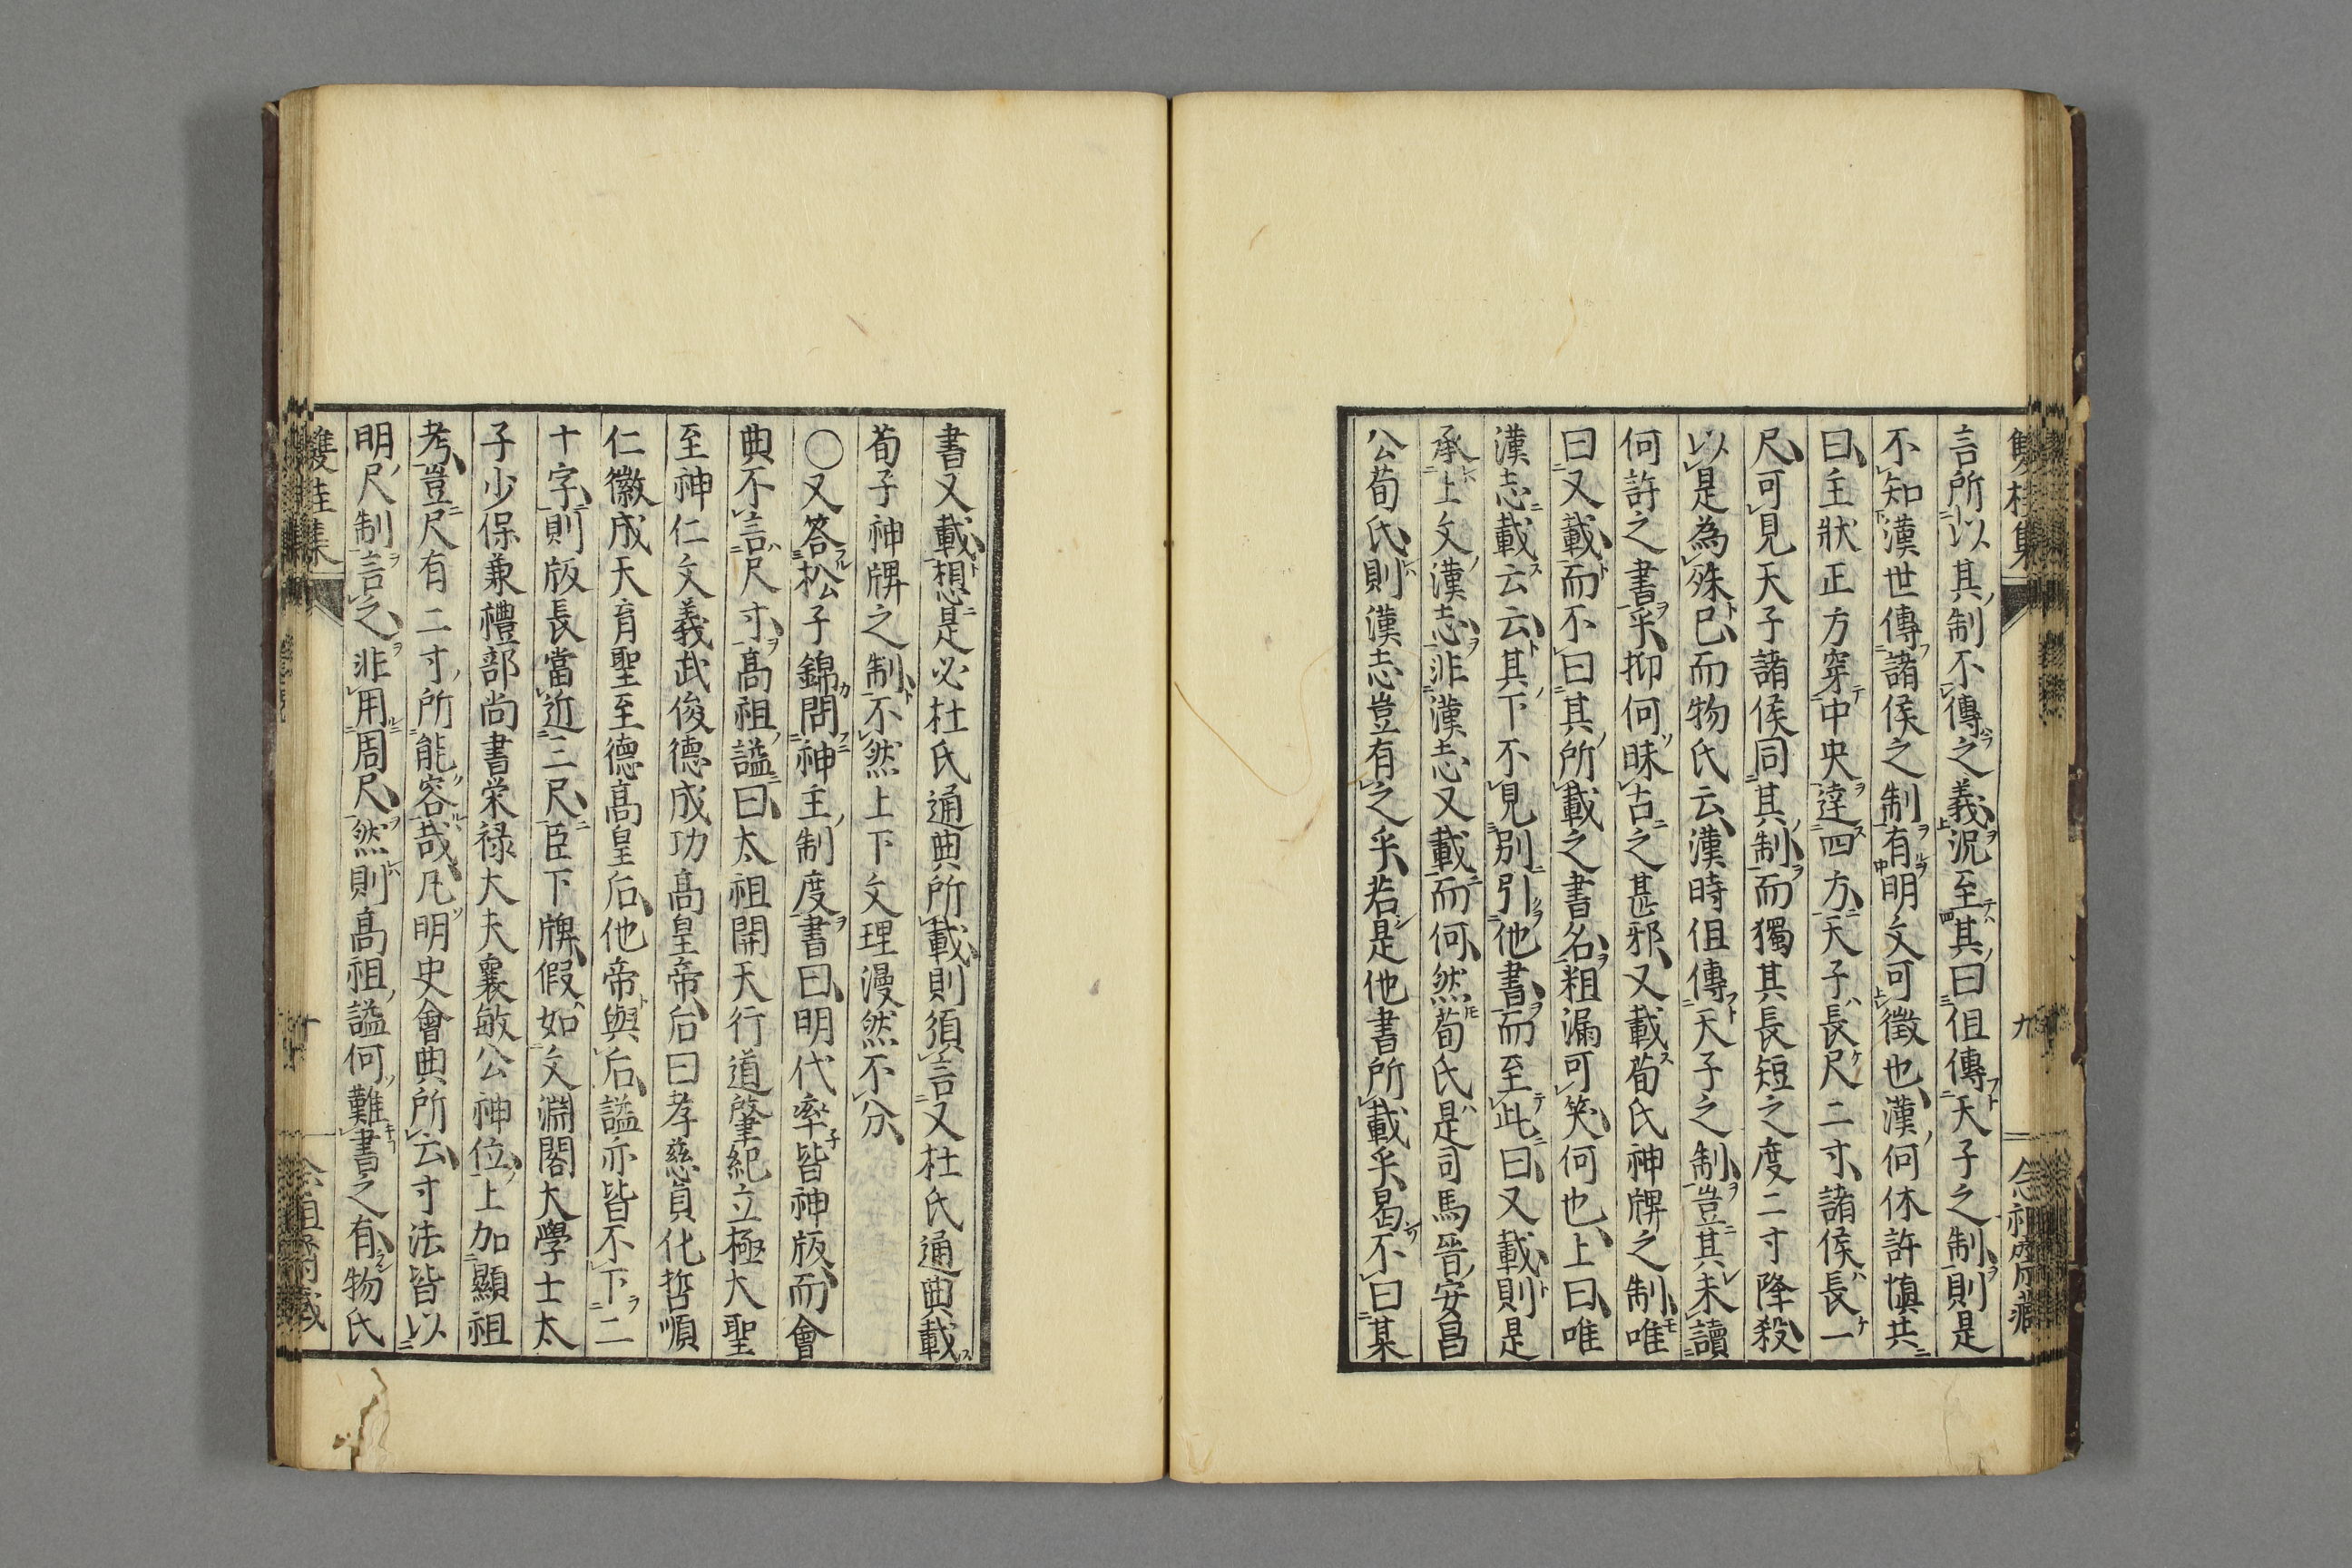 言所以其制不傳之義況至其曰但傳天子之制則是
不知漢世傳諸侯之制有明文可徵也漢何休許慎共
曰主狀正方穿中央達四方天子長尺二寸諸侯長一
尺可見天子諸侯同其制而獨其長短之度二寸降殺
以是為殊已而物氏云漢時但傳天子之制豈其未讀
何許之書乎抑何昧古之甚邪又載荀氏神牌之制唯
曰又載而不曰其所載之書名粗漏可笑何也上曰唯
漢志載云云其下不見別引他書而至此曰又載則是
承上文漢志非漢志又載而何然荀氏是司馬晉安昌
公荀氏則漢志豈有之乎若是他書所載乎曷不曰某
書又載想是必杜氏通典所載則須言又杜氏通典載
荀子神牌之制不然上下文理漫然不分
○又答松子錦問神主制度書曰明代率皆神版而會
典不言尺寸高祖謚曰太祖開天行道肇紀立極大聖
至神仁文義武俊德成功高皇帝后曰孝慈貞化哲順
仁徽成天育聖至德高皇后他帝與后謚亦皆不下二
十字則版長當近三尺臣下牌假如文淵閣大學士太
子少保兼禮部尚書栄禄大夫襄敏公神位上加顯祖
考豈尺有二寸所能容哉凡明史會典所云寸法皆以
明尺制言之非用周尺然則高祖謚何難書之有物氏